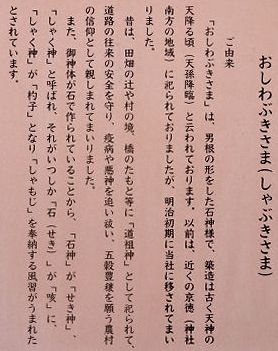 おしわぶきさま(しゃぶきさま)
ご由来
「おしわぶきさま」は、男根の形をした石神様で、築造は古く天神の
天降る頃、(天孫降臨)と云われております。以前は、近くの京徳(神社
南方の地域)に祀られておりましたが、明治初期に当社に移されてまい
りました。
昔は、田畑の辻や村の境、橋のたもと等に「道祖神」として祀られて、
道路の往来の安全を守り、疫病や悪神を追い祓い、五穀豊穣を願う農村
の信仰として親しまれてまいりました。
また、御神体が石で作られていることから、「石神」が「せき神」、
「しゃく神」と呼ばれ、それがいつしか「石(せき)」が「咳」に、
「しゃく神」が「杓子」となり「しゃもじ」を奉納する風習がうまれた
とされています。